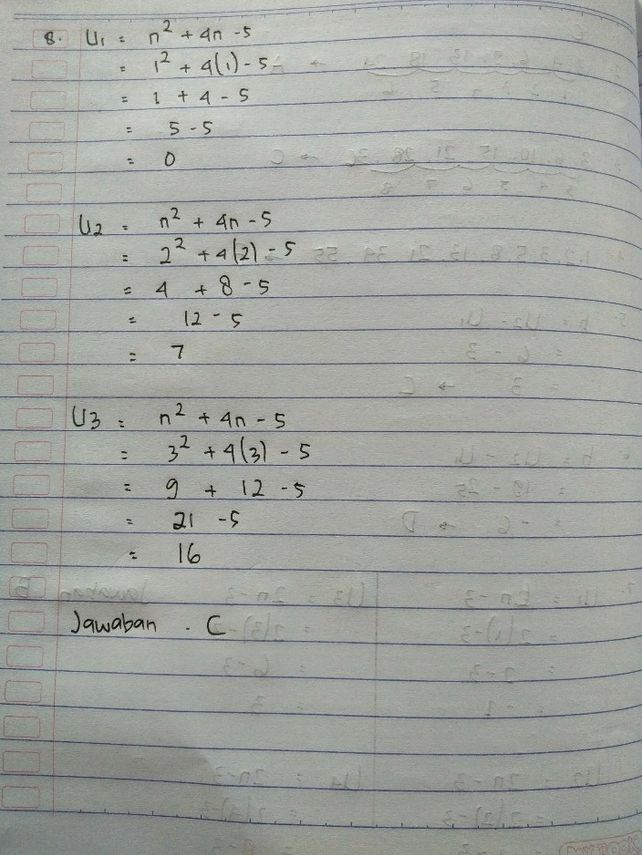 8. U1 = n² + 4n - 5
= 1² + 4(1) - 5
= 1 + 4 - 5
= 5 - 5
= 0
U2 = n² + 4n - 5
= 2² + 4(2) - 5
= 4 + 8 - 5
= 12 - 5
= 7
U3 = n² + 4n - 5
= 3² + 4(3) - 5
= 9 + 12 - 5
= 21 - 5
= 16
Jawaban . C